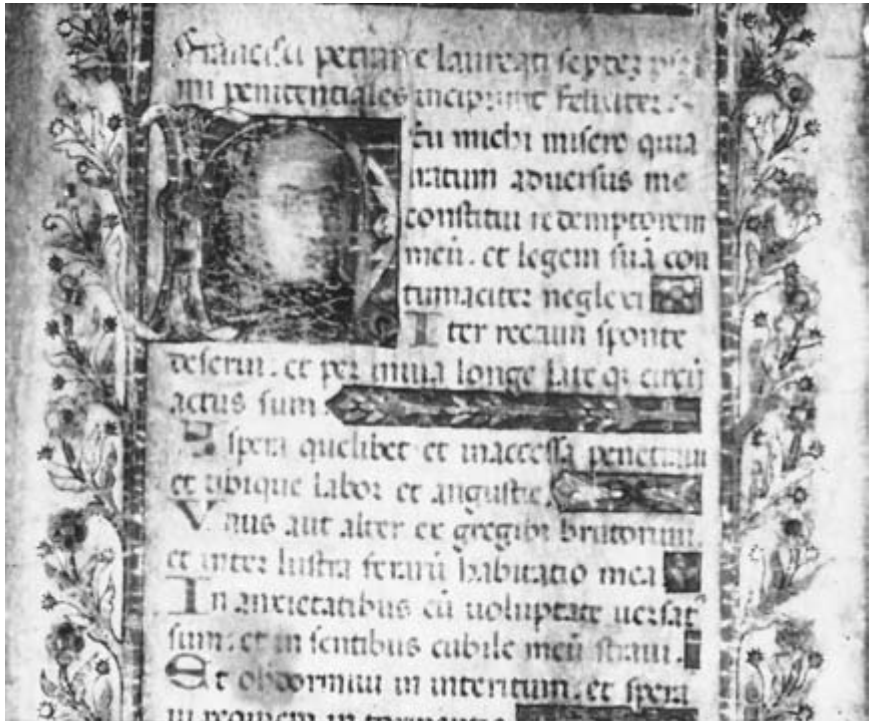 Francisci petrarce laureati septez psal
mi penitentiales incipiunt feliciter.
Heu michi misero quia
iratum aduersus me
constitui redemptorem
meū. et legem suā con
tumaciter neglexi
Iter rectum sponte
deserui. et per inuia longe late qȝ circū
actus sum.
Aspera quelibet et inaccessa penetraui
et ubique labor et angustie.
Vnus aut alter ex gregibȝ brutorum.
et inter lustra ferarū habitatio mea
In anxietatibus cū uoluptate uersatꝰ
sum. et in sentibus cubile meū straui.
Et obdormiui in interitum. et spera
ui requiem in tormentis